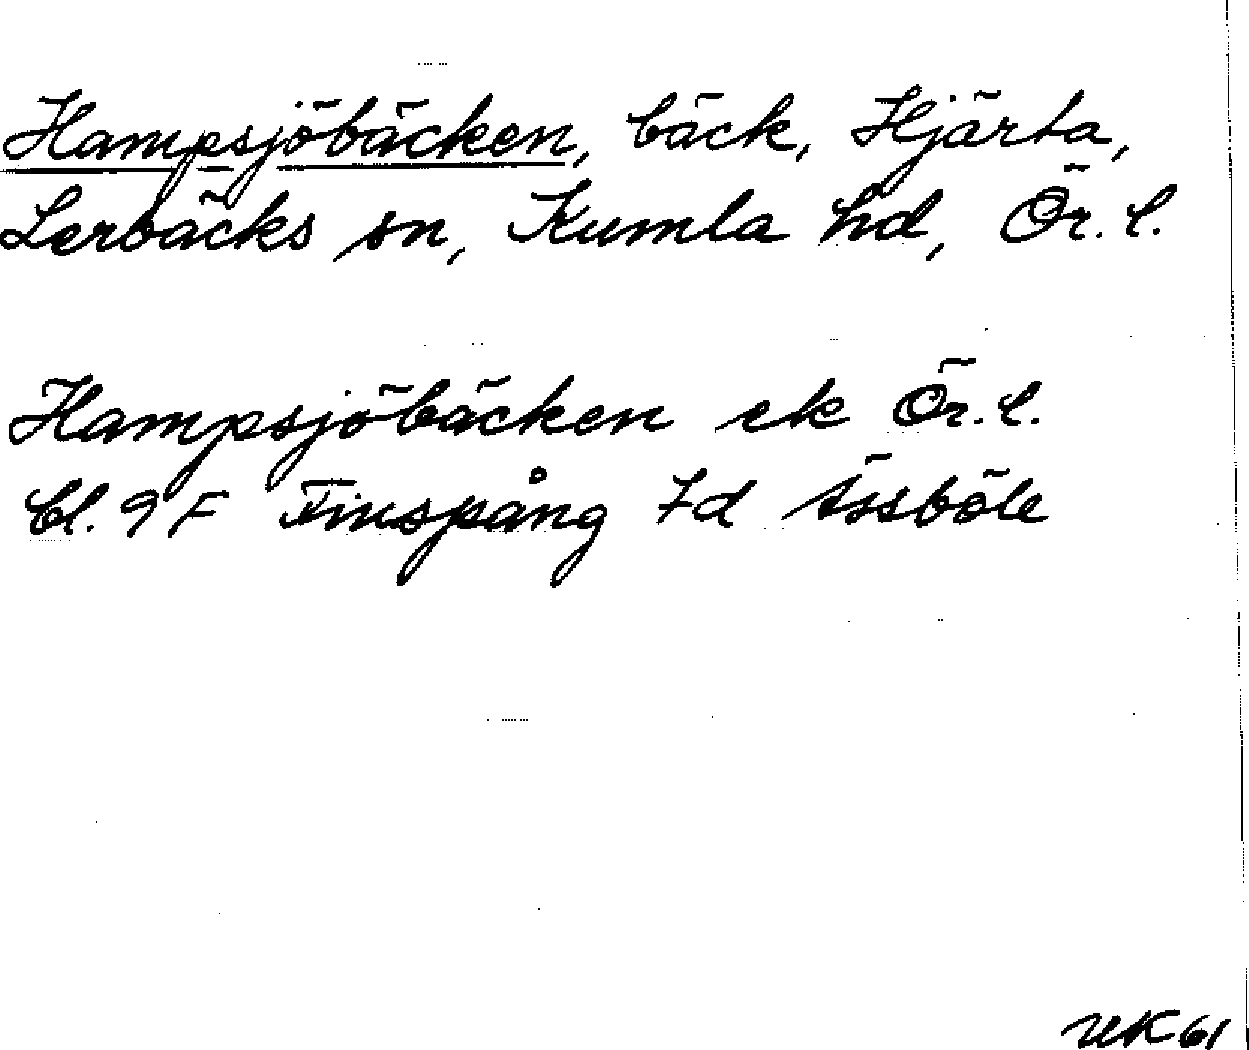 Hampsjöbäcken, bäck, Hjärta,
Lerbäcks sn, Kumla hd, Ör. l.
Hampsjöbäcken ek Ör. l.
bl. 9 F Finspång 7d Åsböle
UK 61